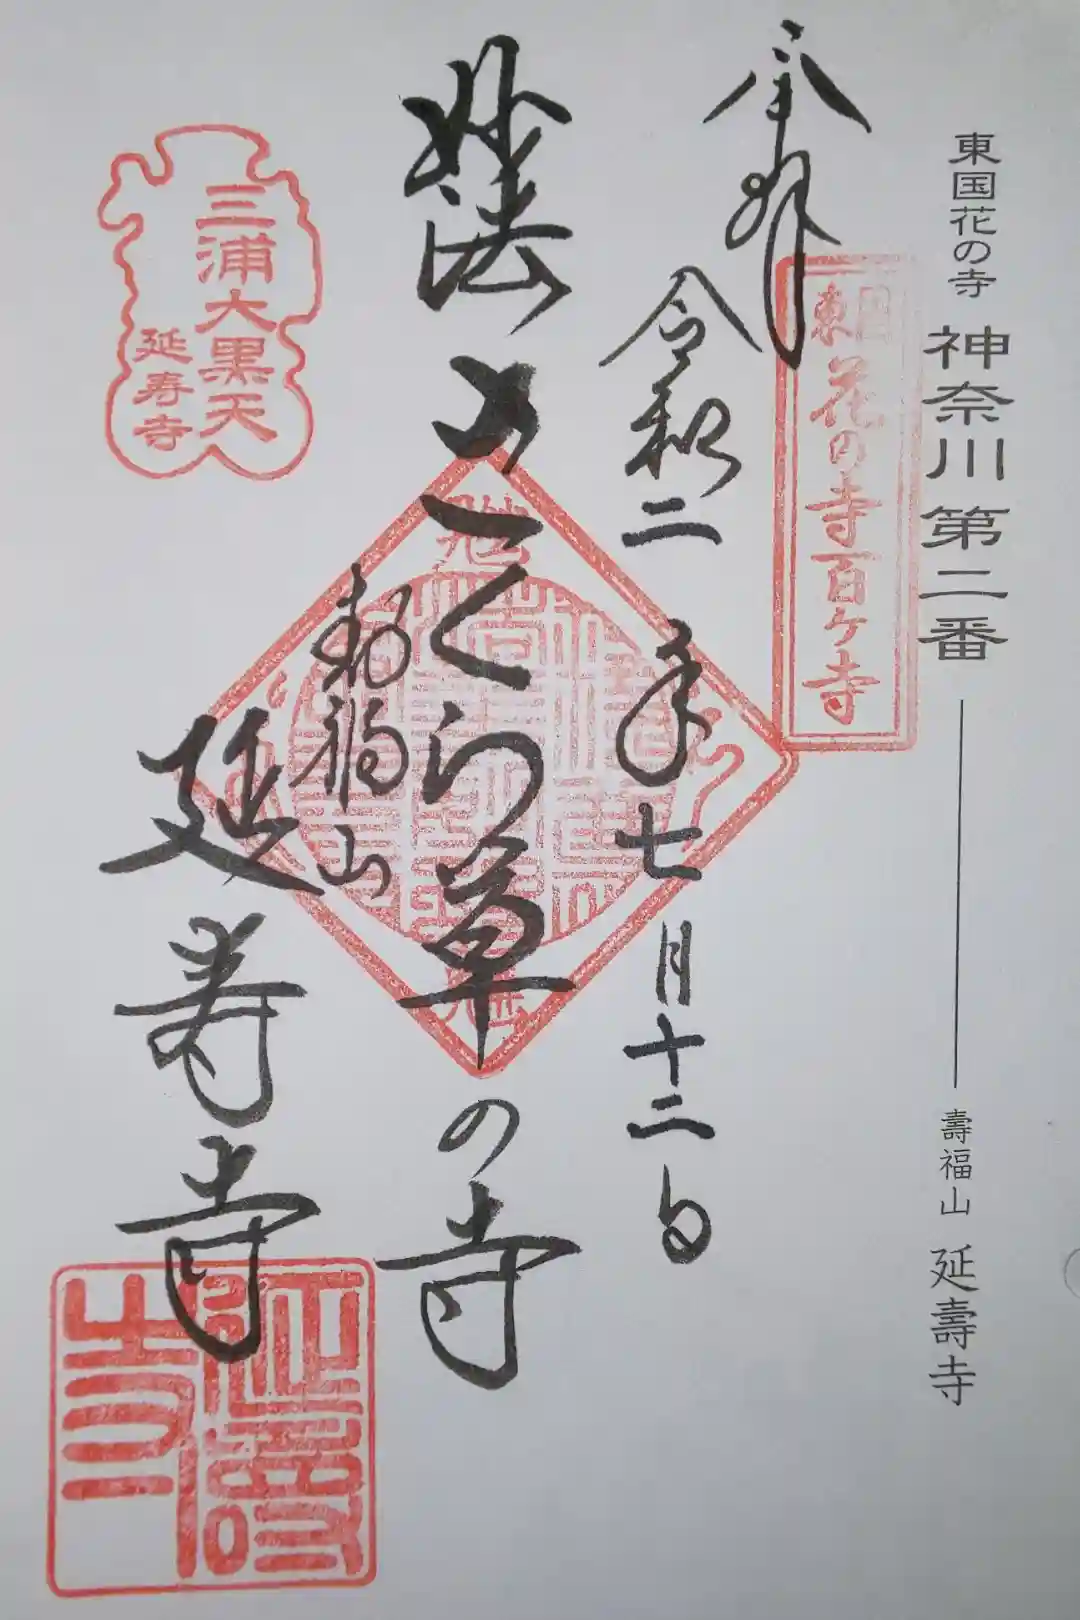 東国花の寺 神奈川第二番 壽福山 延壽寺
東国
花の寺百ケ寺
奉拝
令和二年七月十二日
妙法 さくら草の寺
寿福山
延寿寺
三浦大黒天
延寿寺
延壽寺